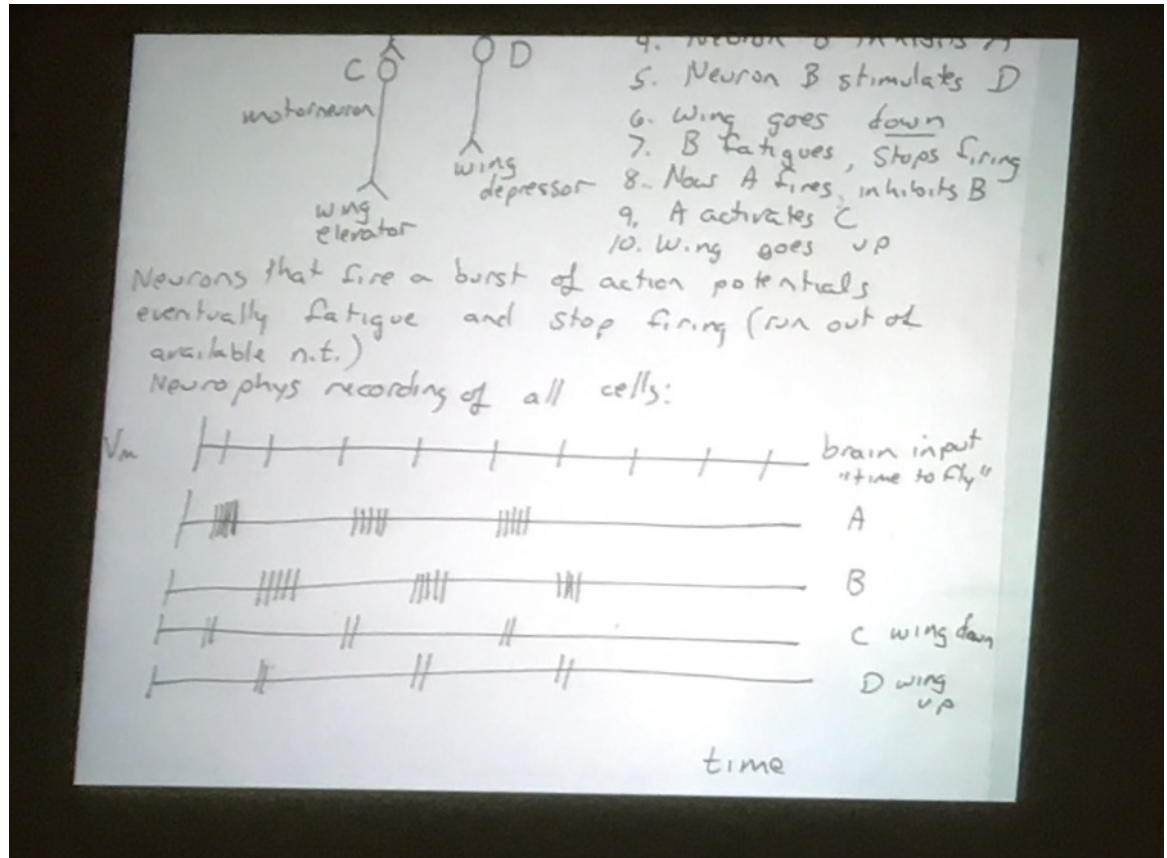 C
D
motorneuron
wing
elevator
wing
depressor
4. Neuron B inhibits A
5. Neuron B stimulates D
6. Wing goes down
7. B fatigues, stops firing
8. Now A fires, inhibits B
9. A activates C
10. Wing goes up
Neurons that fire a burst of action potentials
eventually fatigue and stop firing (run out of
available n.t.)
Neurophys recording of all cells:
Vm
brain input
"time to fly"
A
B
C wing down
D wing
up
time